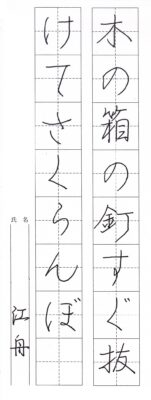 木の箱の釘すぐ抜
けてさくらんぼ
氏名
江舟